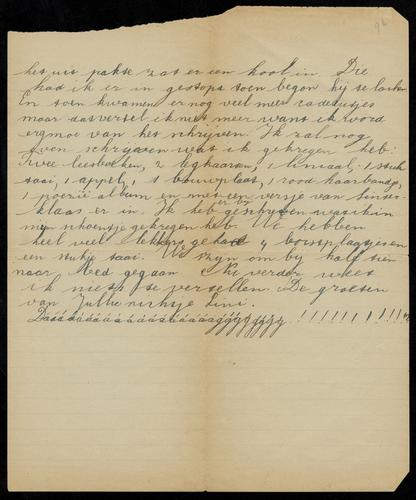 het uit pakte zat er een kool in. Die
had ik er in gestopt toen begon hij te lachen
En toen kwamen er nog veel meer radeisjes
maar dat vertel ik niet meer want ik word
erg moe van het schrijven. Ik zal nog
even schrijven wat ik gekregen heb:
Twee leesboeken, 2 legkaarten, 1 liniaal, 1 stuk
taai, 1 appel, 1 bouwplaat, 1 rood haarbandje,
1 poëzie album en met een versje van Sinter-
klaas er in. Ik heb geschreven wat ik in
mijn schoentje gekregen heb. We hebben
heel veel lekkers gehad 4 borstplaatjes en
een stukje taai. We zijn om bij half tien
naar bed gegaan. Verder weet
ik niets te vertellen. De groeten
van Jullie nichtje Lini.
Dáááááááááááááááááágggggggg !!!!!!!!!!